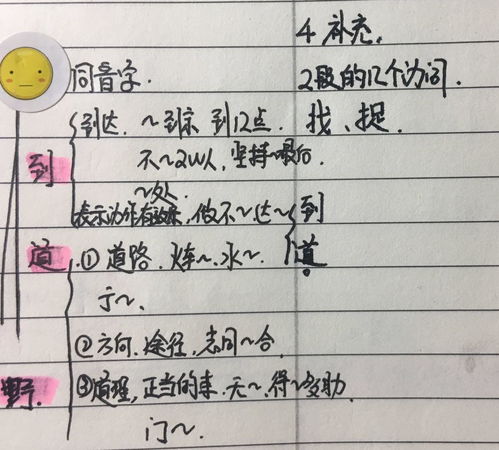 4 补充.
同音字.
2段的12个动词.
到达. ~到京 到12点.
找、捉.
到
不~2W人, 坚持~最后.
~处.
表示动作有效果, 做不~达~
到
道
道 ① 道路. 火车~. 水~.
②方向. 途径, 志同~合.
野. ③道理, 正当的事. 无~. 得~多助.
门~.